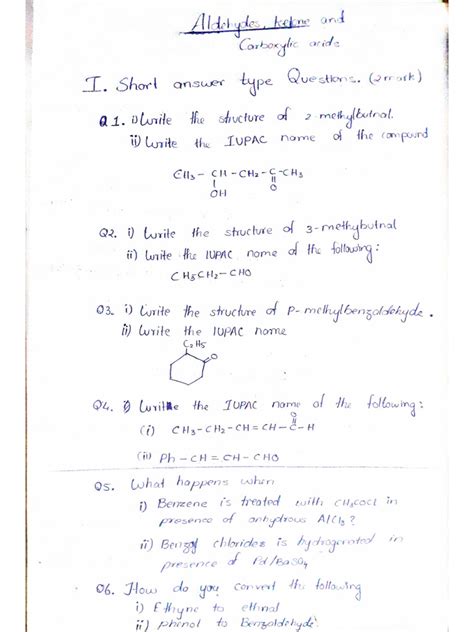 Aldehydes, ketone and
Carboxylic acids
I. Short answer type Questions. (2 mark)
Q1. i) Write the structure of 2-methylbutnal.
ii) Write the IUPAC name of the compound
CH3 - CH - CH2 - C - CH3
OH O
Q2. i) Write the structure of 3-methybutnal
ii) Write the IUPAC name of the following:
CH3CH2 - CHO
Q3. i) Write the structure of P-methylbenzaldehyde.
ii) Write the IUPAC name
C2H5
O
Q4. i) Write the IUPAC name of the following:
O
(i) CH3 - CH2 - CH = CH - C - H
(ii) Ph - CH = CH - CHO
Q5. What happens when
i) Benzene is treated with CH3COCl in
presence of anhydrous AlCl3?
ii) Benzoyl chlorides is hydrogenated in
presence of Pd/BaSO4
Q6. How do you convert the following
i) Ethyne to ethnal
ii) phenol to Benzaldehyde.